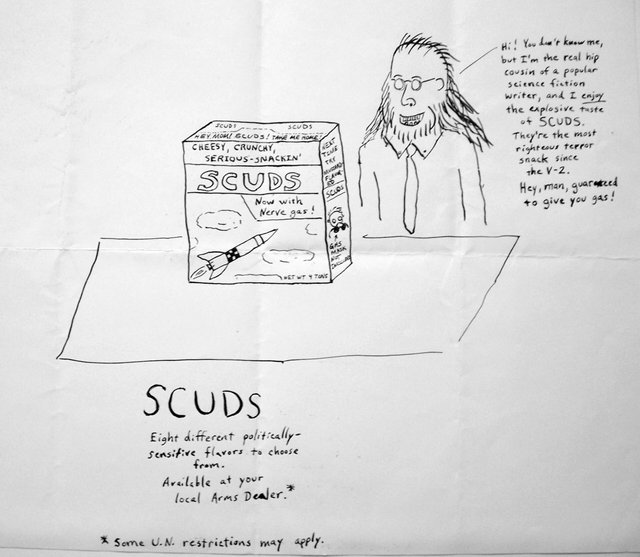 Hi! You don't know me,
but I'm the real hip
cousin of a popular
science fiction
writer, and I enjoy
the explosive taste
of SCUDS.
They're the most
righteous terror
snack since
the V-2.
Hey, man, guaranteed
to give you gas!
SCUDS SCUDS
HEY MOM! SCUDS! TAKE ME HOME!
CHEESY, CRUNCHY,
SERIOUS-SNACKIN'
SCUDS
Now with
Nerve gas!
NET WT 4 TONS
NEXT
TIME
TRY
FLAVOR
SCUDS
GAS
MASK
NOT
SCUDS
Eight different politically-
sensitive flavors to choose
from.
Available at your
local Arms Dealer.*
* Some U.N. restrictions may apply.